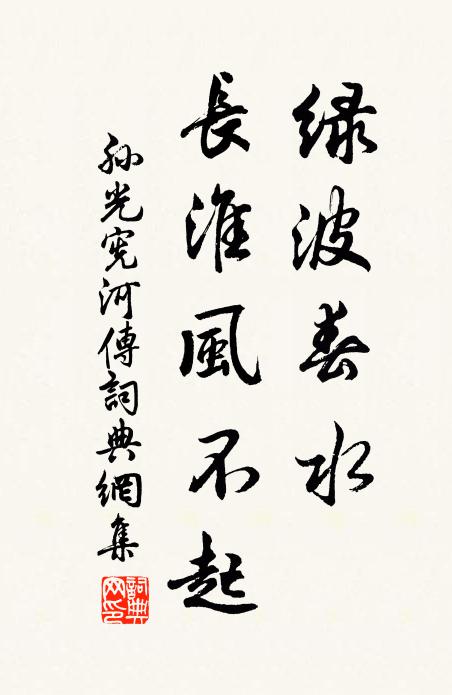 緑波春水
長淮風不起
孫光宪河傳詞典網集
詞典
网印